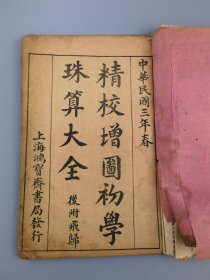 中華民國三年春
精校增圖初學
珠算大全
後附飛歸
上海鴻寶齋書局發行